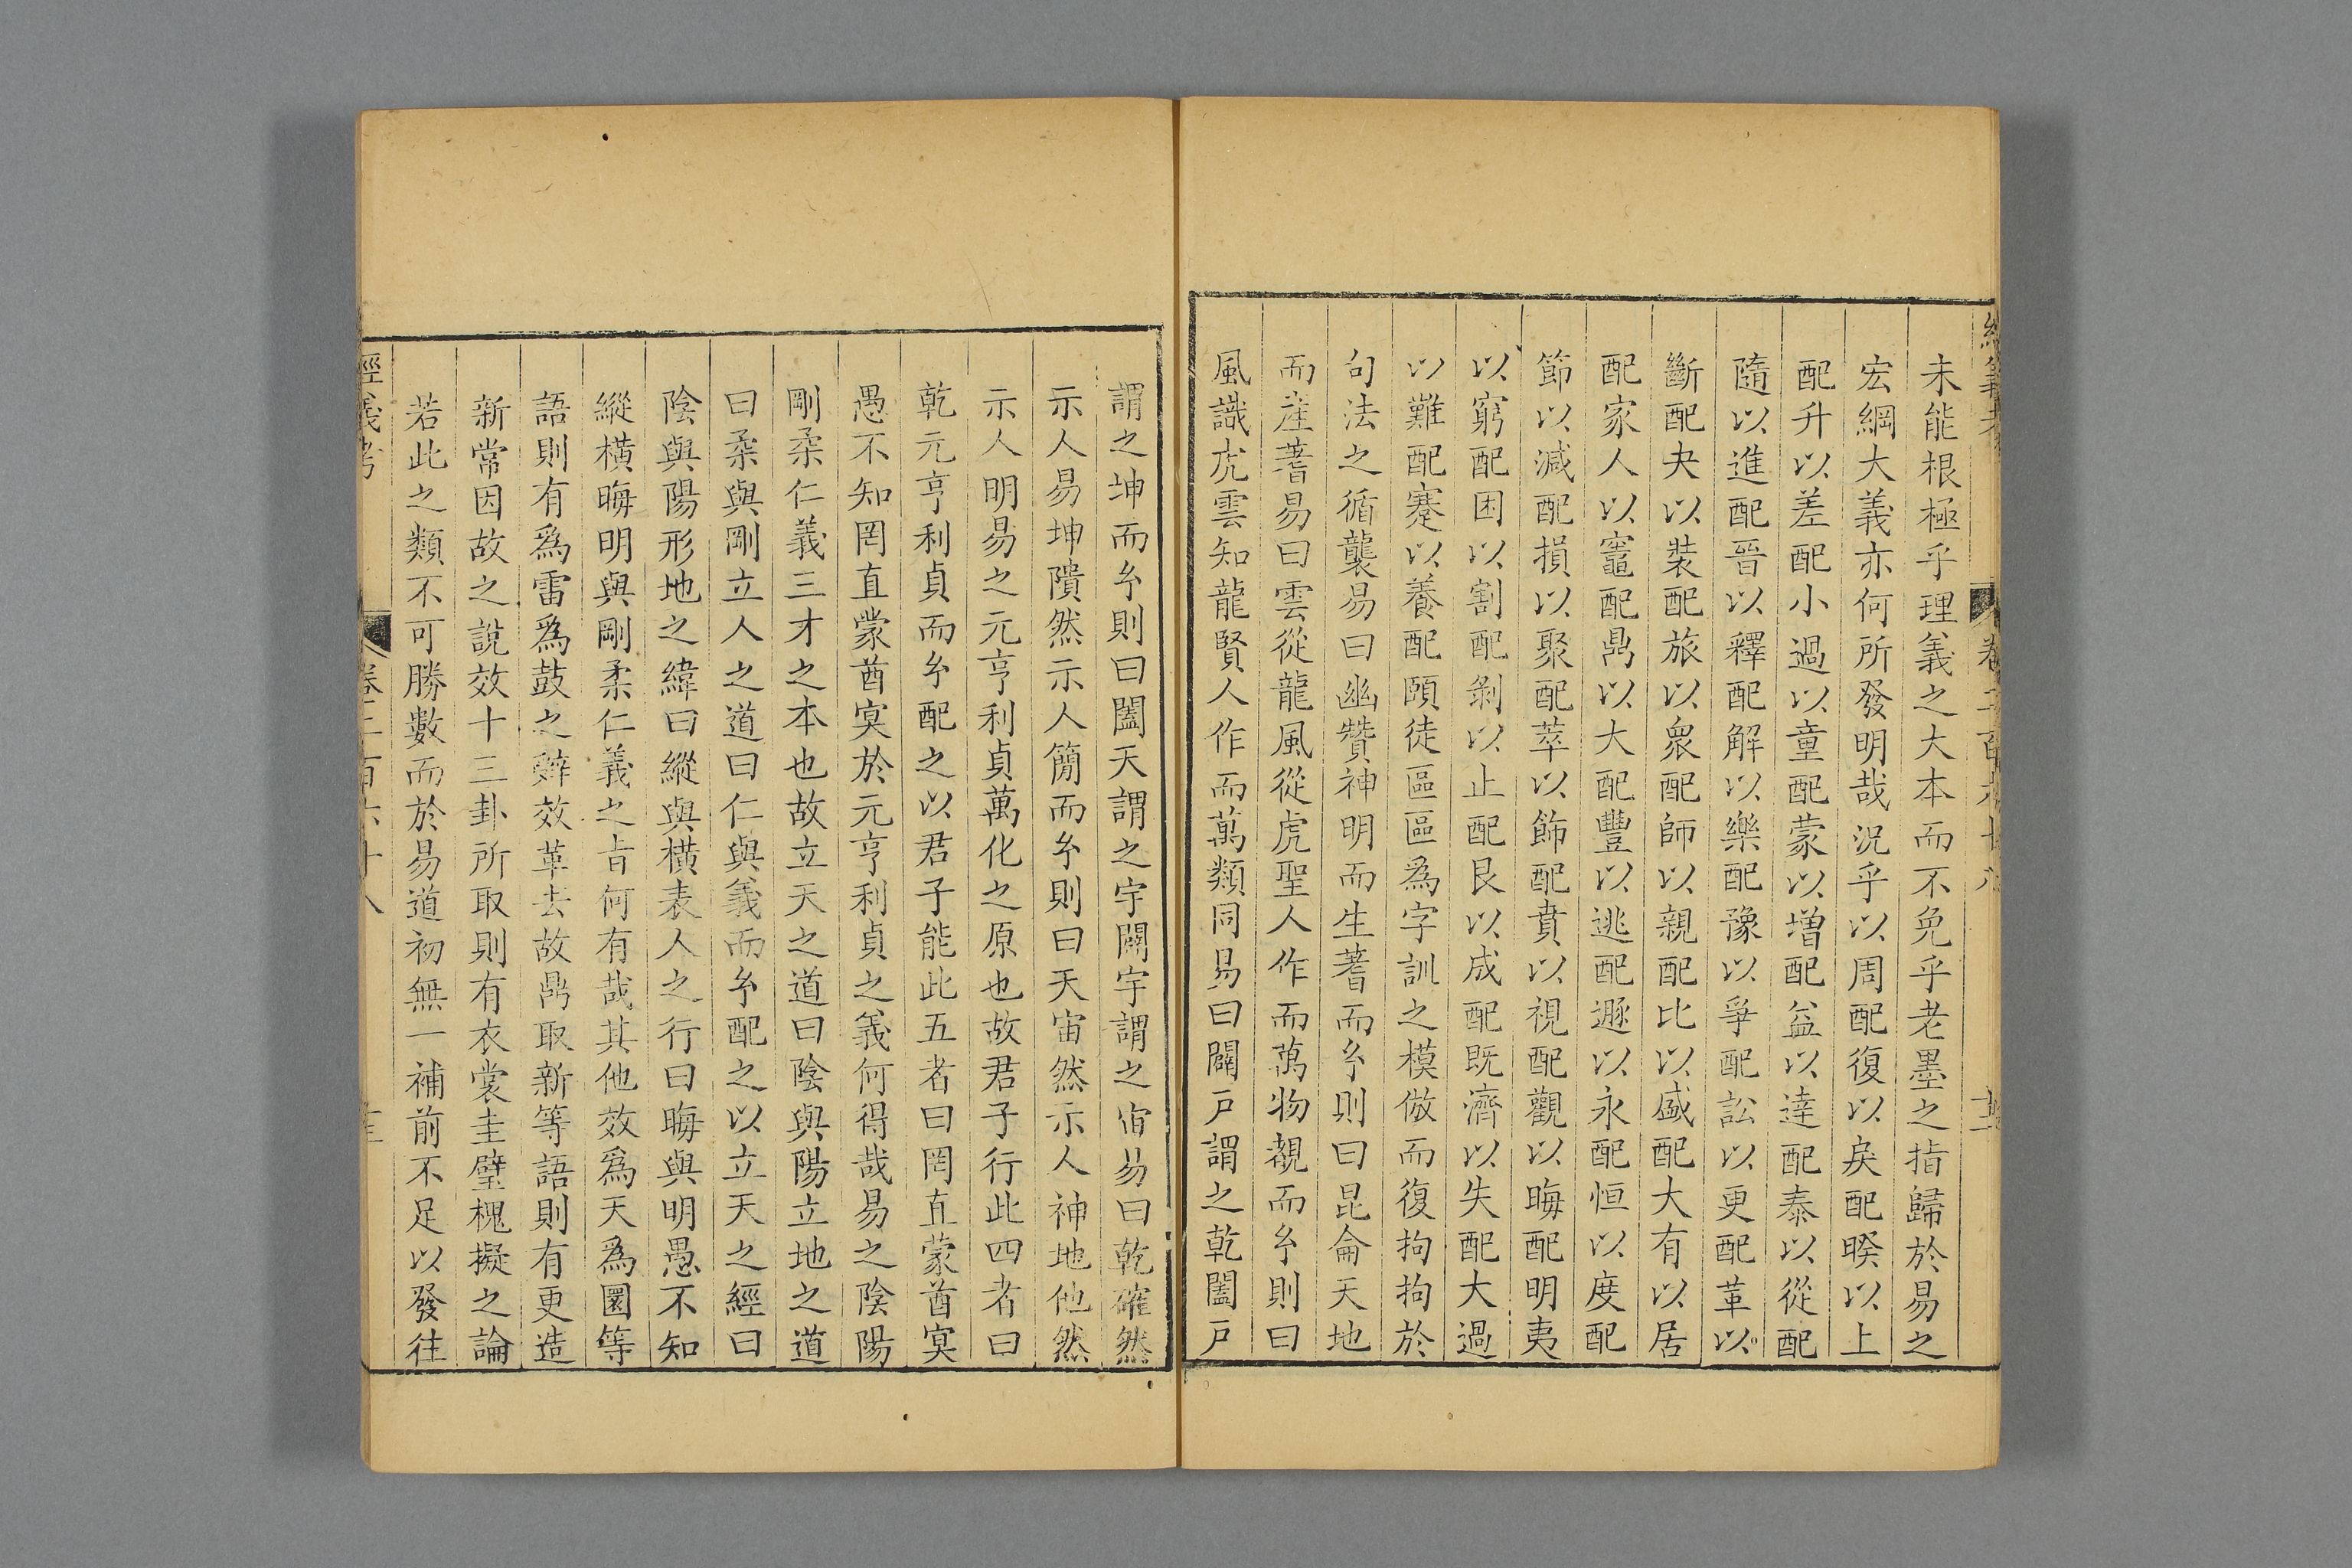 未能根極乎理義之大本而不免乎老墨之指歸於易之
宏綱大義亦何所發明哉況乎以周配復以戾配睽以上
配升以差配小過以童配蒙以增配益以達配泰以從配
隨以進配晉以釋配解以樂配豫以爭配訟以更配革以
斷配夬以裝配旅以衆配師以親配比以盛配大有以居
配家人以竈配鼎以大配豐以逃配遯以永配恒以度配
節以減配損以聚配萃以飾配賁以視配觀以晦配明夷
以窮配困以割配剝以止配艮以成配既濟以失配大過
以難配蹇以養配頤徒區區為字訓之模倣而復拘拘於
句法之循襲易曰幽贊神明而生蓍而糸則曰昆侖天地
而產蓍易曰雲從龍風從虎聖人作而萬物覩而糸則曰
風識虎雲知龍賢人作而萬類同易曰闢戸謂之乾闔戸
謂之坤而糸則曰闔天謂之宇闢宇謂之宙易曰乾確然
示人易坤隤然示人簡而糸則曰天宙然示人神地他然
示人明易之元亨利貞萬化之原也故君子行此四者曰
乾元亨利貞而糸配之以君子能此五者曰罔直蒙酋冥
愚不知罔直蒙酋冥於元亨利貞之義何得哉易之陰陽
剛柔仁義三才之本也故立天之道曰陰與陽立地之道
曰柔與剛立人之道曰仁與義而糸配之以立天之經曰
陰與陽形地之緯曰縱與橫表人之行曰晦與明愚不知
縱橫晦明與剛柔仁義之旨何有哉其他效為天為圜等
語則有為雷為鼓之辭效革去故鼎取新等語則有更造
新常因故之說效十三卦所取則有衣裳圭璧槐擬之論
若此之類不可勝數而於易道初無一補前不足以發往
經義考 卷二百六十八